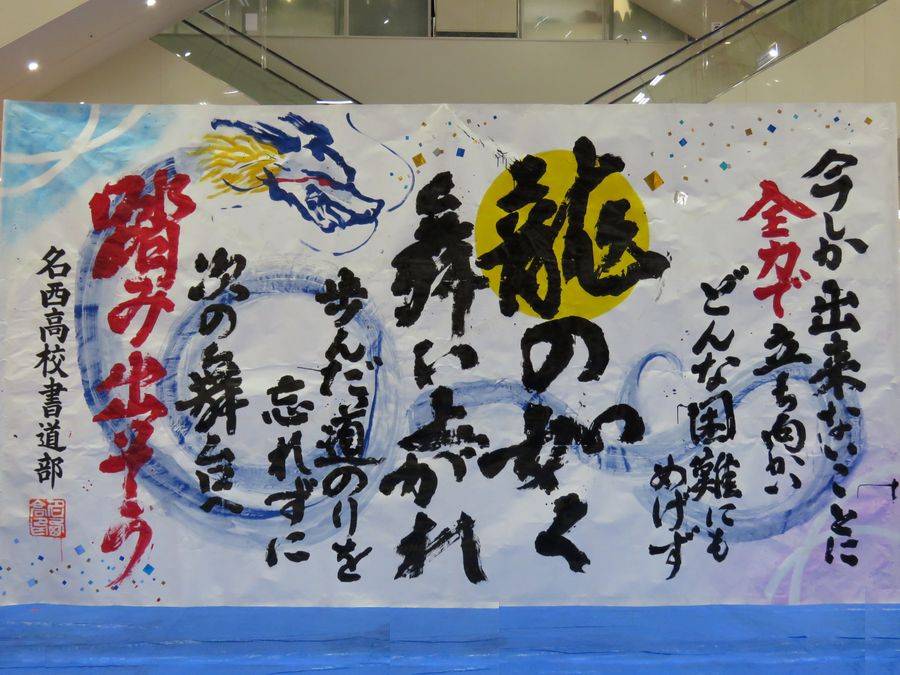 今しか出来ないことに
全力で立ち向かい
どんな困難にも
めげず
龍の如く
舞い上がれ
歩んだ道のりを
忘れずに
次の舞台へ
踏み出そう
名西高校書道部